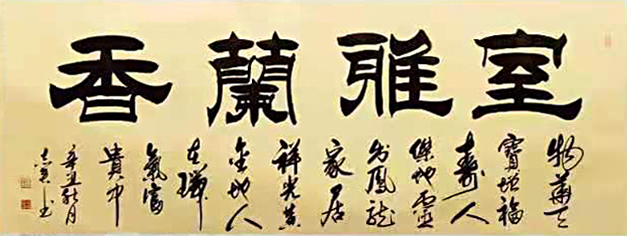 室雅蘭香
物華天
寶增福
壽人
傑地靈
出鳳龍
家居
祥光黃
金地人
在瑞
氣富
貴中
辛丑秋月
書